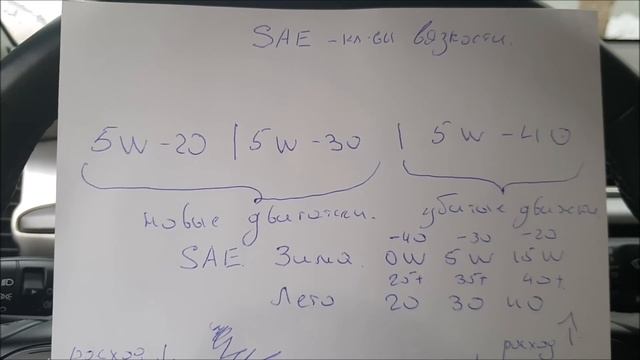 SAE - кл-сы вязкости.
5W-20 | 5W-30 | 5W-40
новые двигатели. убитые движки
-40 -30 -20
SAE. Зима. 0W 5W 15W
25+ 35+ 40+
Лето 20 30 40
расход ↓. расход ↑